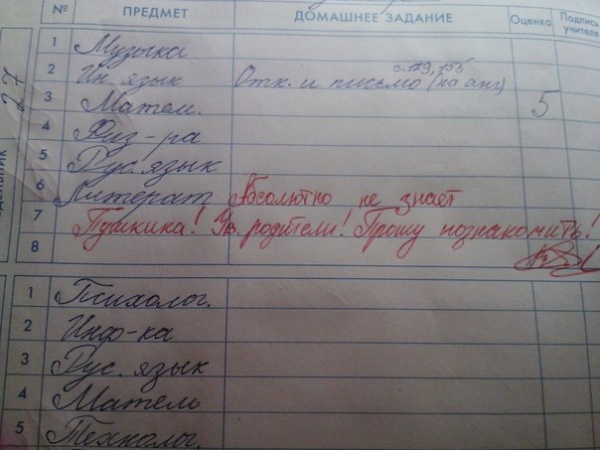 № ПРЕДМЕТ ДОМАШНЕЕ ЗАДАНИЕ Оценка Подпись учителя
1 Музыка
2 Ин. язык Отк. и письмо (на анг) с. 129, 155
3 Матем. 5
4 Физ-ра
5 Рус. язык
6 Литерат Абсолютно не знает
7 Пушкина! Ув. родители! Прошу познакомить!
8
1 Психолог.
2 Инф-ка
3 Рус. язык
4 Матем
5 Технолог.
27